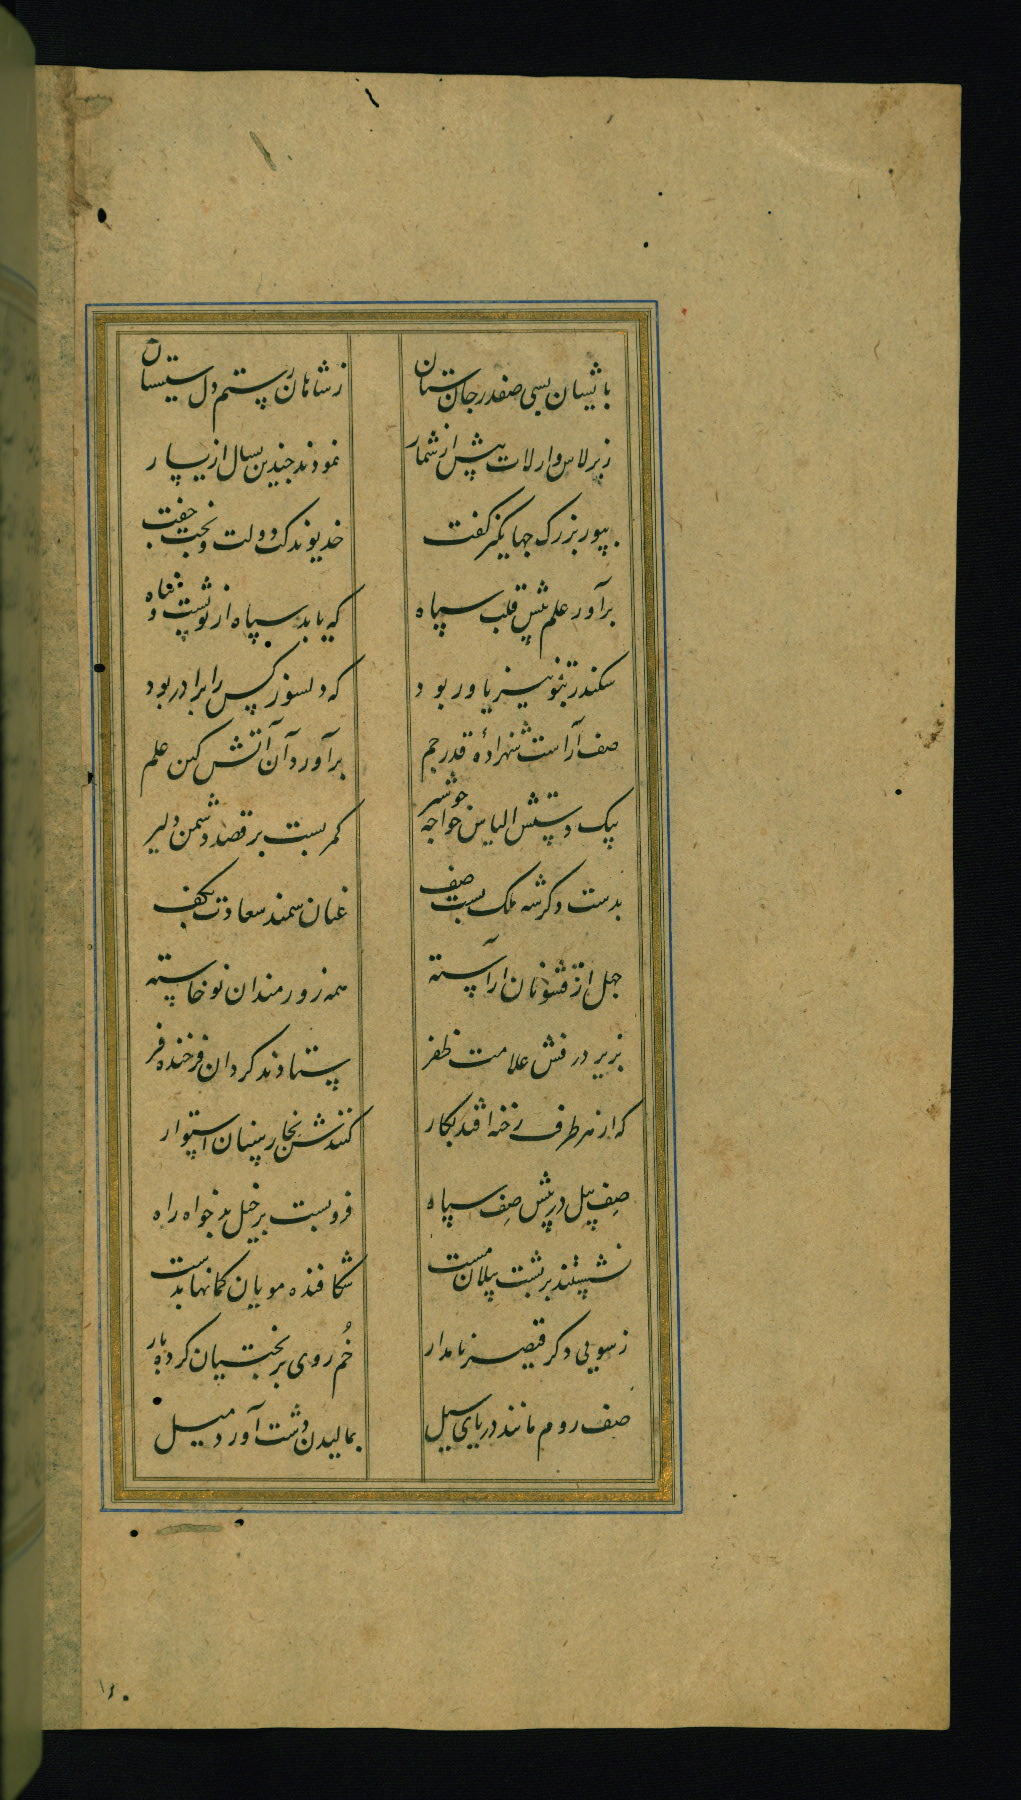 باشیان بسی صفدر جان ستان
ز شاهان رستم دل سیستان
ز برلاس و ارلات پیش از شمار
نمودند چندین یسال از یسار
بپور بزرگ جهانگیر گفت
خدیوند کت دولت و بخت جفت
برآور علم پیش قلب سپاه
که یابد سپاه از تو پشت و پناه
سکندر بتو نیز یاور بود
که دلسوز کس را برادر بود
صف آراست شهزادهٔ قدر جم
برآورد آن آتش کین علم
بیک دستش الیاس خواجه چو شیر
کمر بست بر قصد دشمن دلیر
بدست دگر شه ملک بست صف
عنان سمند سعادت بکف
چهل از قشونان آراسته
همه زورمندان نوخاسته
بزیر درفش علامت ظفر
ستادند گردان فرخنده فر
که از هر طرف رخنه افتد بکار
کنندش بخار سنان استوار
صف پیل در پیش صف سپاه
فروبست بر خیل بدخواه راه
نشستند بر پشت پیلان مست
شکافنده مویان کمانها بدست
ز سویی دگر قیصر نامدار
خم روی بر بختیان کرده بار
صف روم مانند دریای سیل
بمالیدن دشت آورد میل